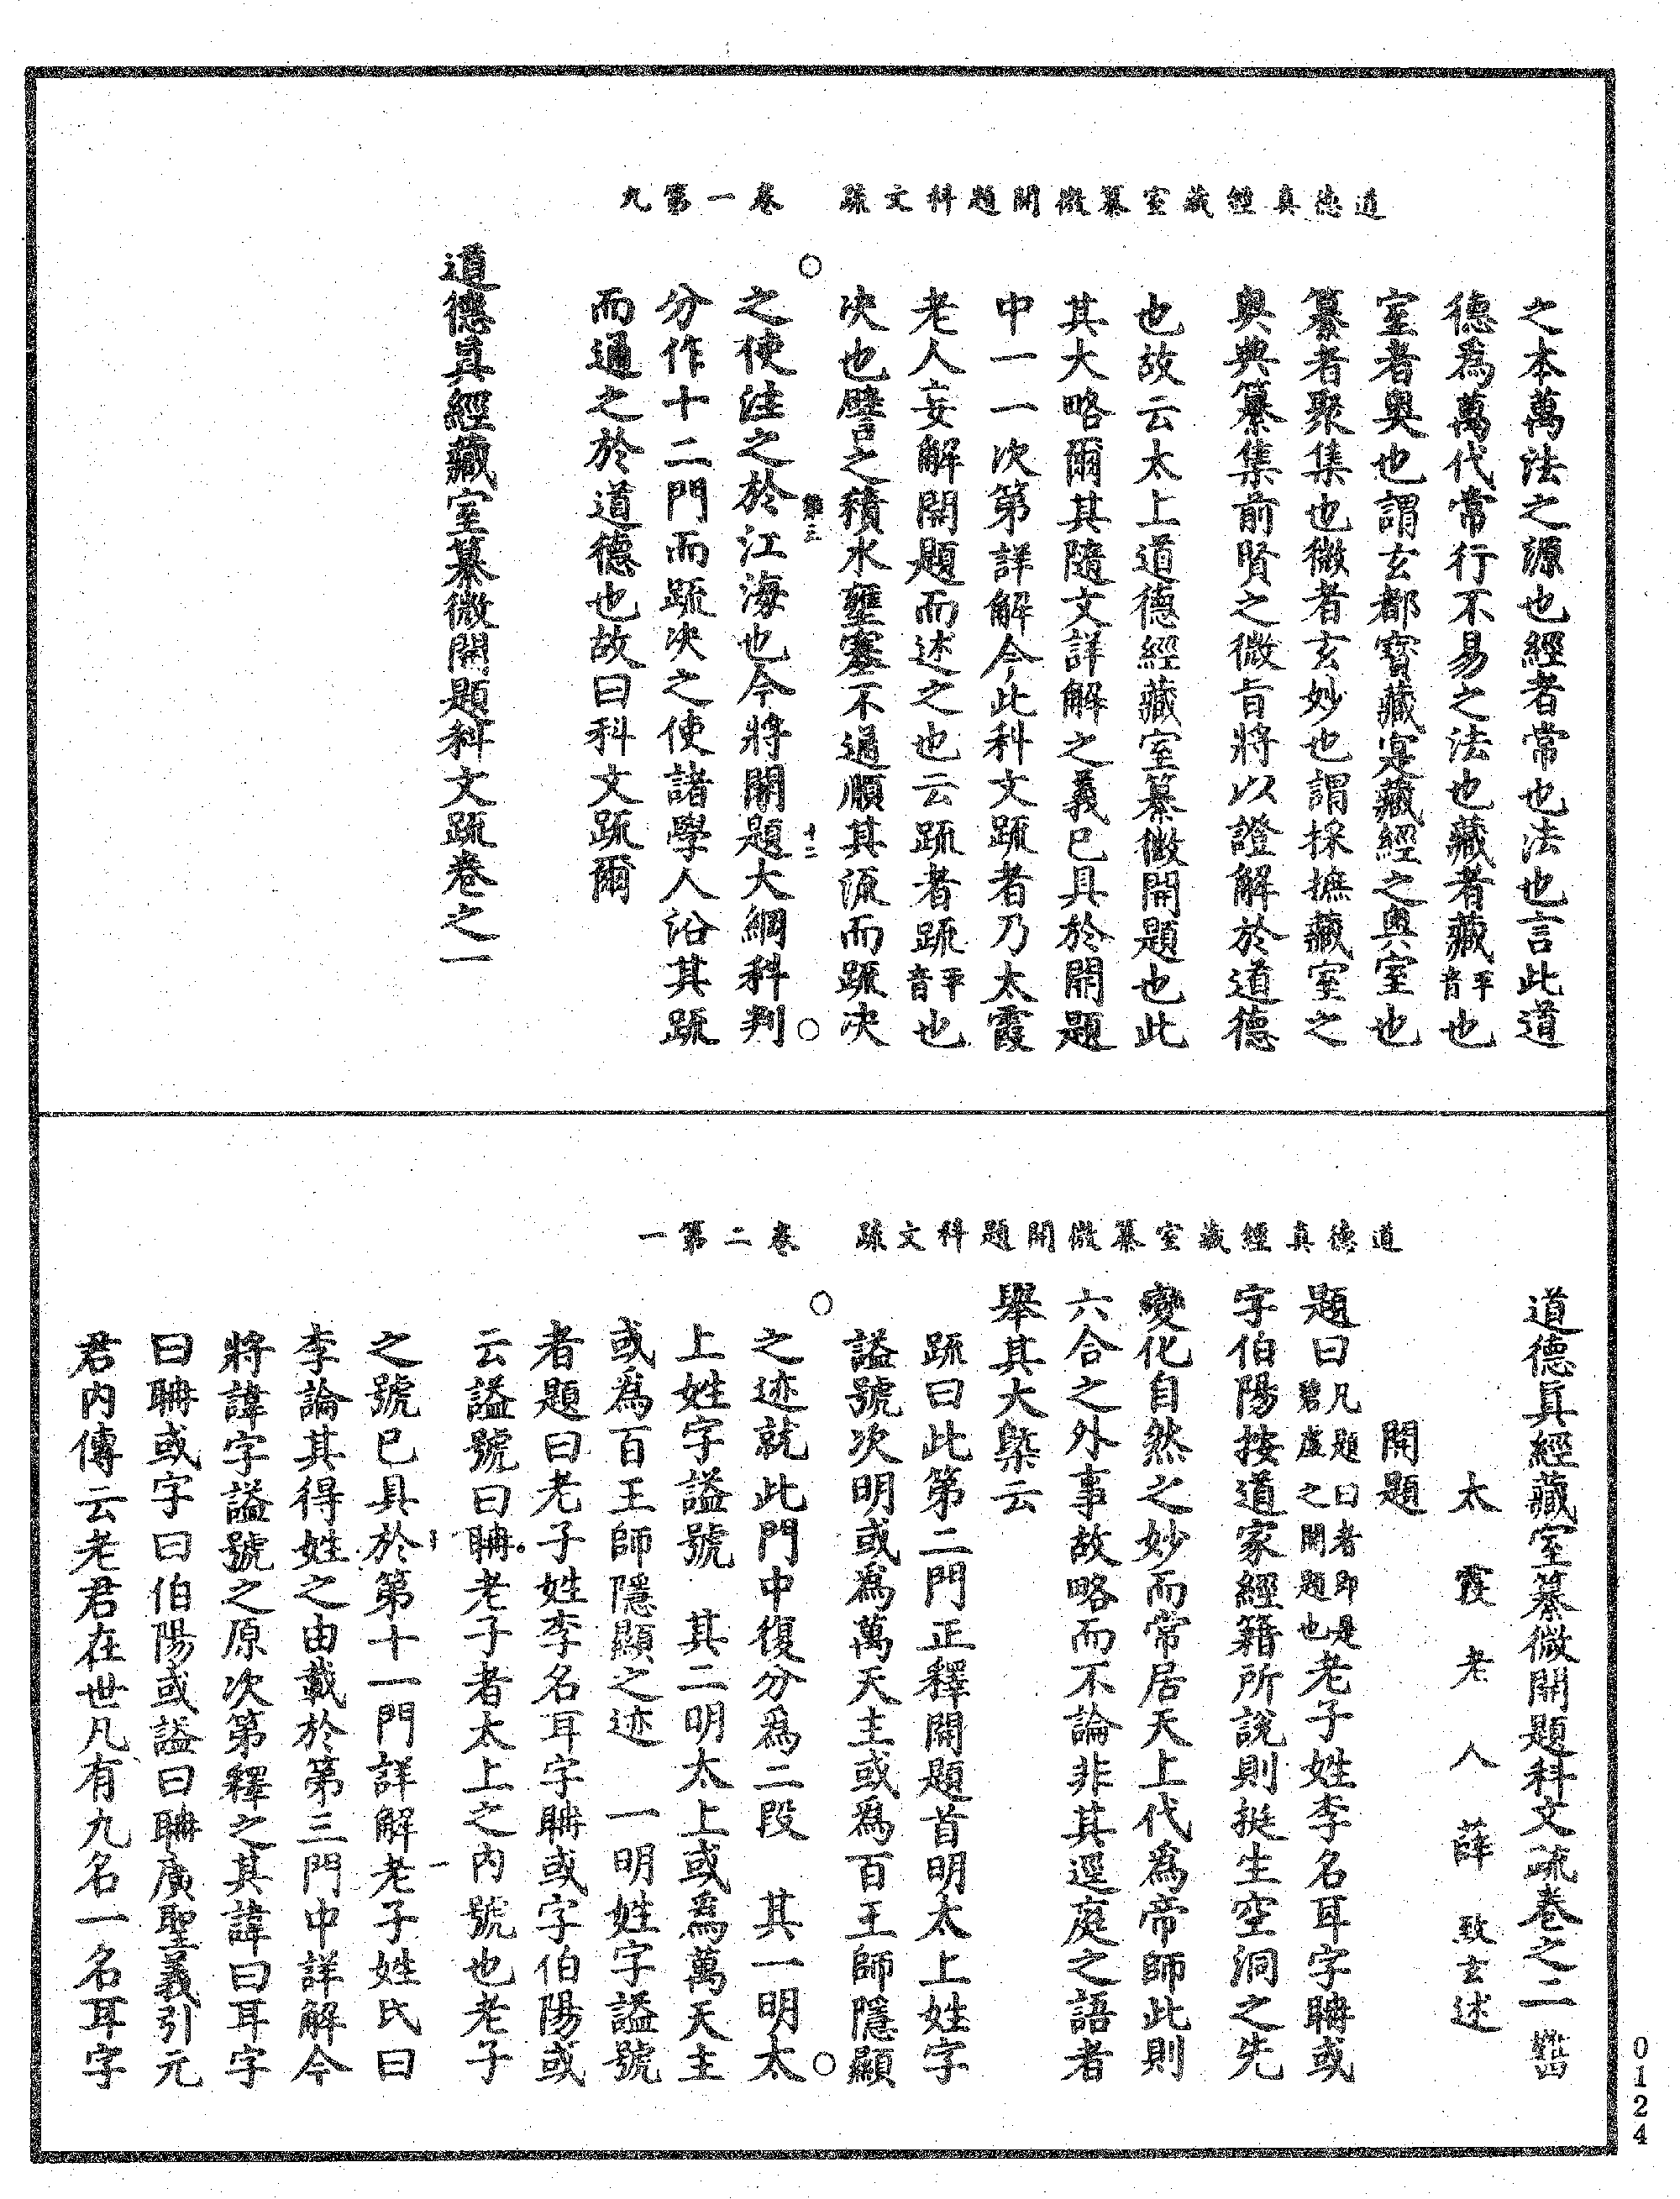 道德真經藏室纂微開題科文疏　卷一第九
之本萬法之源也經者常也法也言此道
德為萬代常行不易之法也藏者藏平音也
室者奧也謂玄都寶藏寔藏經之奧室也
纂者聚集也微者玄妙也謂採摭藏室之
奧典纂集前賢之微旨將以證解於道德
也故云太上道德經藏室纂微開題也此
其大略爾其隨文詳解之義已具於開題
中一一次第詳解今此科文䟽者乃太霞
老人妄解開題而述之也云䟽者䟽平音也
決也譬之積水壅塞不通順其派而䟽決
之使注之於江海也今將開題大綱科判
分作十二門而䟽決之使諸學人沿其䟽
而通之於道德也故曰科文䟽爾
道德真經藏室纂微開題科文䟽卷之一
道德真經藏室纂微開題科文疏　卷二第一
道德真經藏室纂微開題科文疏卷之二
太霞老人薛致玄述
開題
題曰凡題曰者即是碧虛之開題也老子姓李名耳字聃或
字伯陽按道家經籍所說則挺生空洞之先
變化自然之妙而常居天上代為帝師此則
六合之外事故略而不論非其逕庭之語者
舉其大槩云
䟽曰此第二門正釋開題首明太上姓字
謚號次明或為萬天主或為百王師隱顯
之迹就此門中復分為二段　其一明太
上姓字謚號　其二明太上或為萬天主
或為百王師隱顯之迹　一明姓字謚號
者題曰老子姓李名耳字聃或字伯陽或
云謚號曰聃老子者太上之內號也老子
之號已具於第十一門詳解老子姓氏曰
李論其得姓之由載於第三門中詳解今
將諱字謚號之原次第釋之其諱曰耳字
曰聃或字曰伯陽或謚曰聃廣聖義引元
君內傳云老君在世凡有九名一名耳字
0124